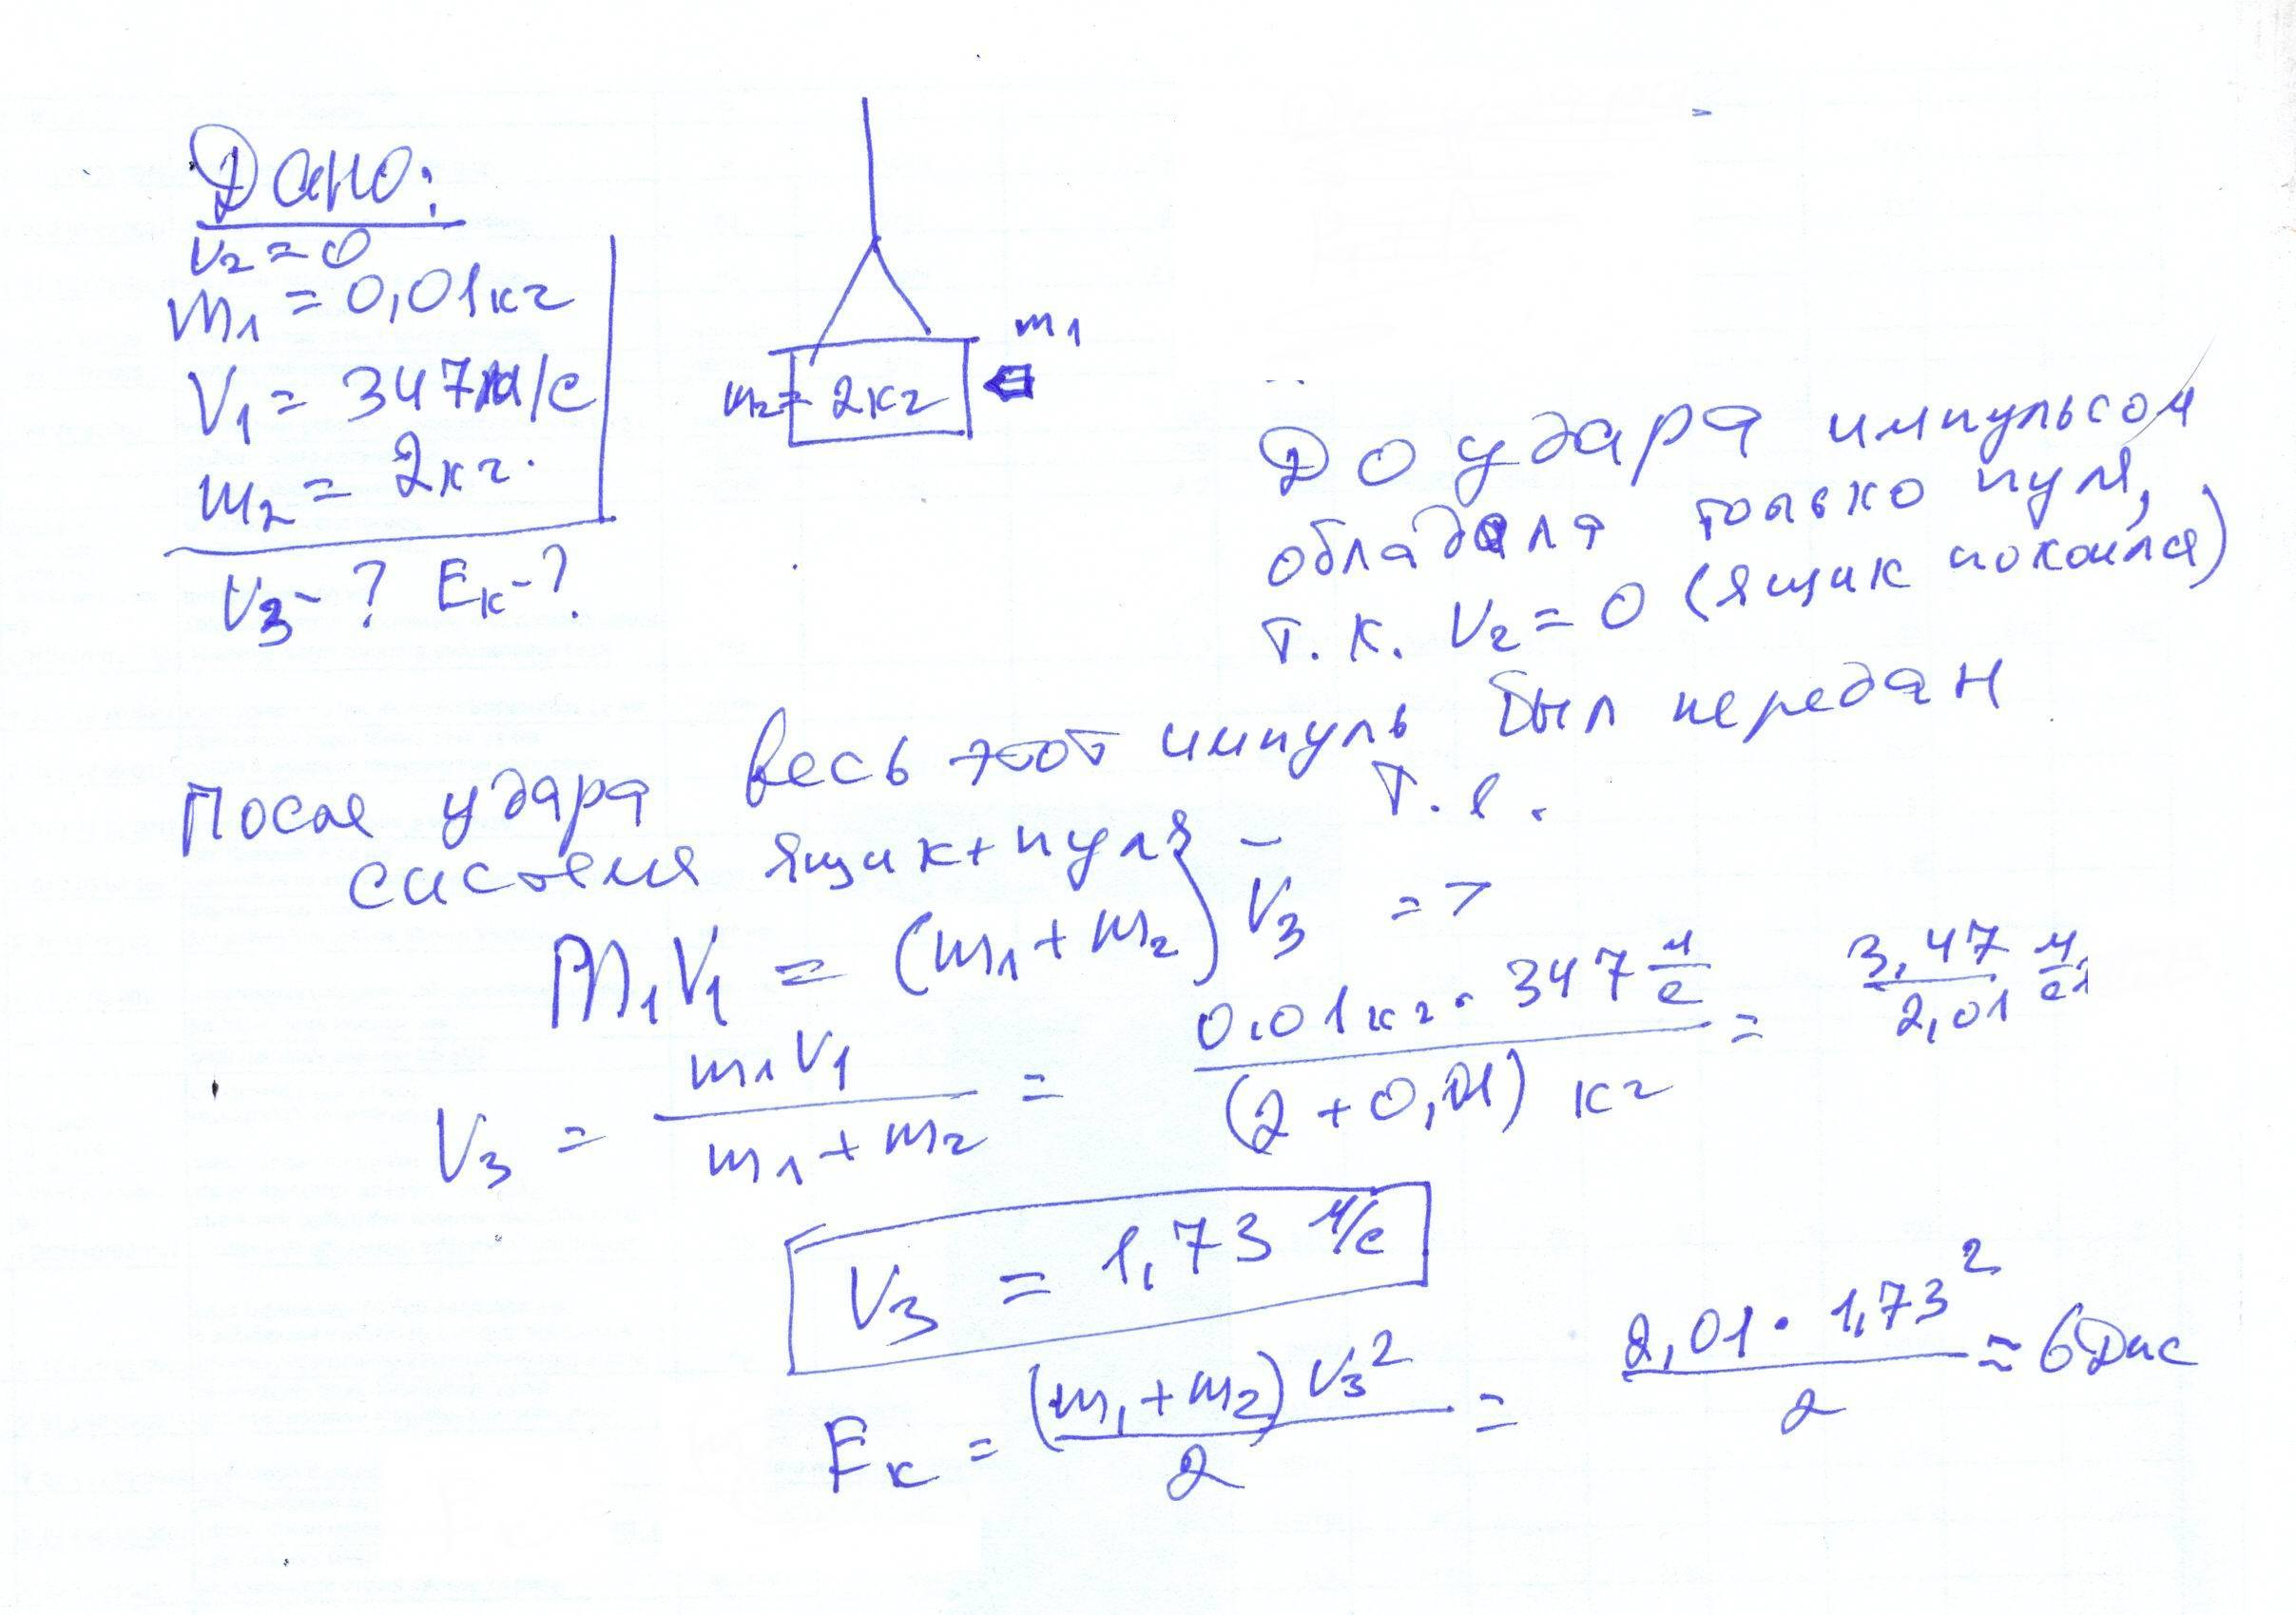 Дано:
V₂ = 0
m₁ = 0,01 кг
V₁ = 347 м/с
m₂ = 2 кг.
V₃ - ? Eк - ?
m₁
m₂ = 2 кг
До удара импульсом
обладала только пуля,
т.к. V₂ = 0 (ящик покоился)
После удара весь этот импуль был передан
система ящик + пуля - т.е.
m₁V₁ = (m₁ + m₂) V₃ =>
V₃ = m₁V₁ / (m₁ + m₂) = 0.01 кг · 347 м/с / (2 + 0,01) кг = 3,47 / 2,01 м/с
V₃ = 1,73 м/с
Eк = (m₁ + m₂) V₃² / 2 = 2,01 · 1,73² / 2 ≈ 6 Дж